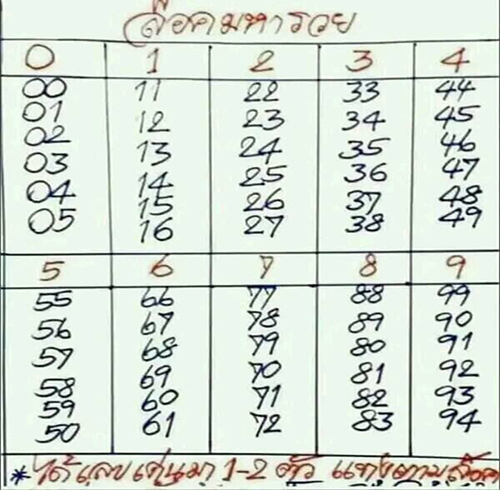 ล๊อคมหารวย
0 1 2 3 4
00 11 22 33 44
01 12 23 34 45
02 13 24 35 46
03 14 25 36 47
04 15 26 37 48
05 16 27 38 49
5 6 7 8 9
55 66 77 88 99
56 67 78 89 90
57 68 79 80 91
58 69 70 81 92
59 60 71 82 93
50 61 72 83 94
*ได้เลขเด่นมา 1-2 ตัว แทงตามล๊อค